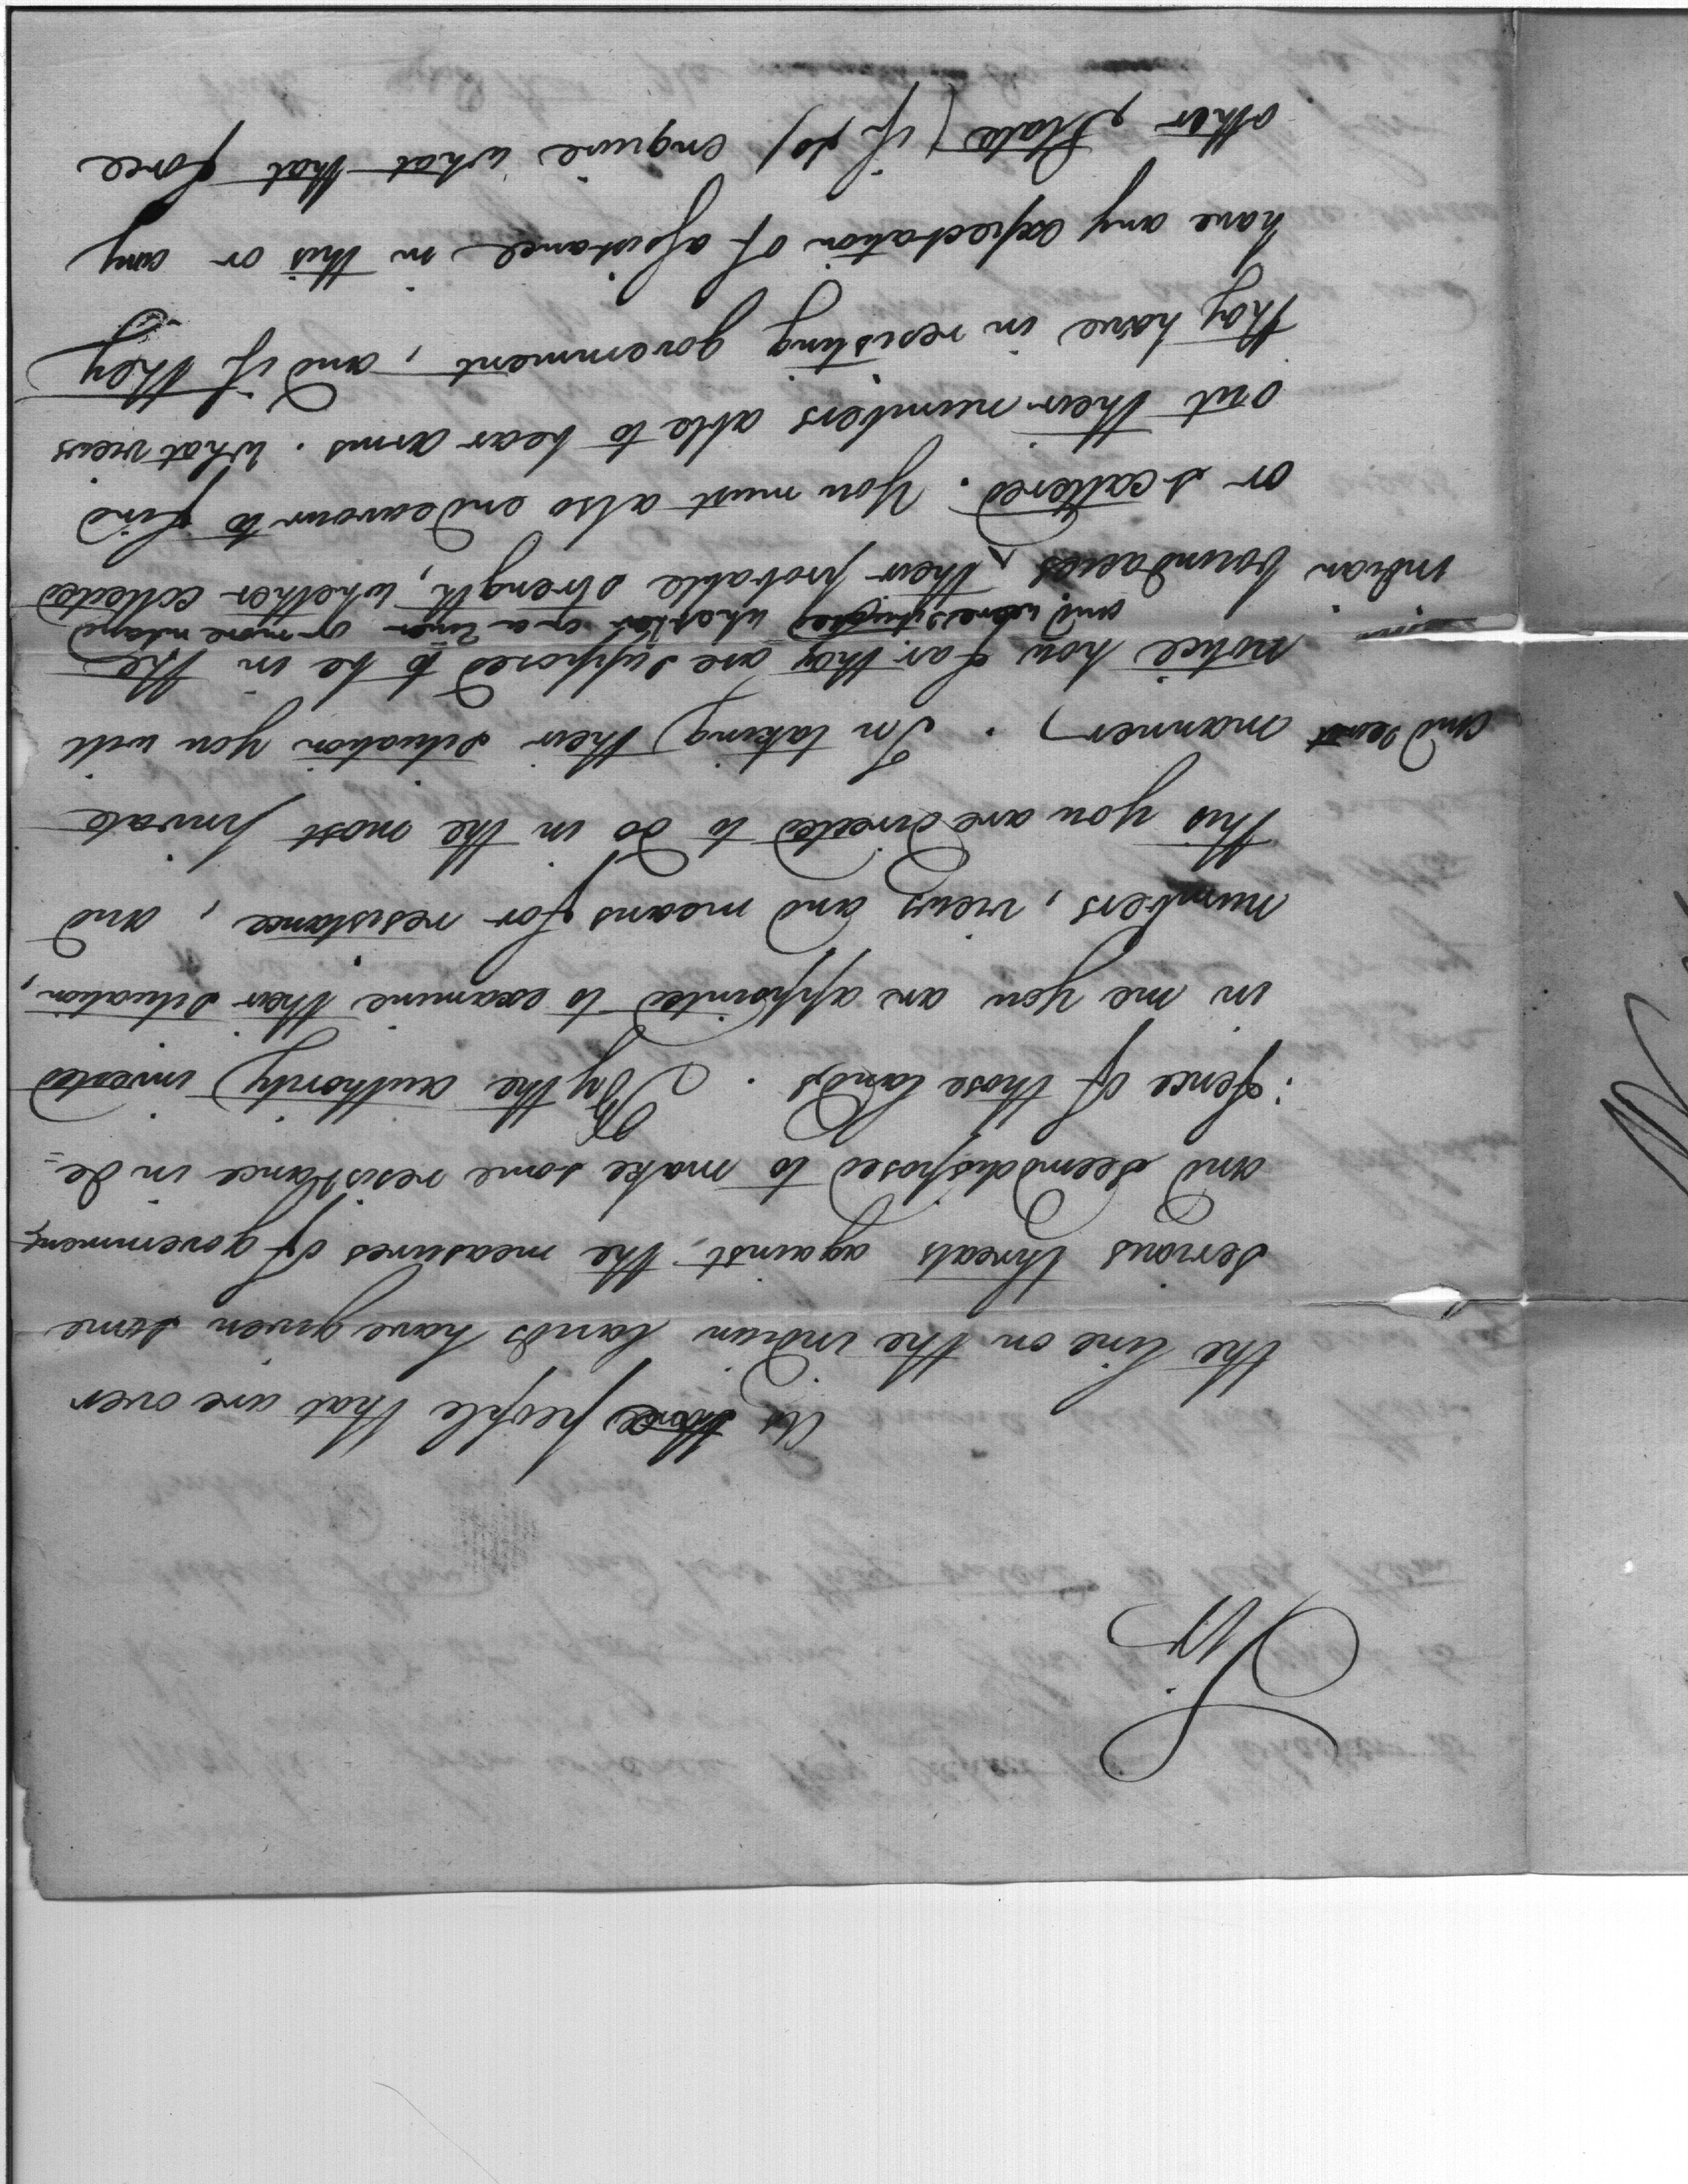 Sir
As those people that are over
the line on the indian lands have given some
serious threats against the measures of government
and seem disposed to make some resistance in de=
:fence of those lands. By the authority invested
in me you are appointed to examine their situation,
numbers, views and means for resistance, and
this you are directed to do in the most private
and secret manner. In taking their situation you will
notice how far they are supposed to be in the
and where situated whether on a river or more inland
indian boundaries ^ their probable strength, whether collected
or scattered. You must also endeavour to find
out their numbers able to bear arms. What views
they have in resisting government, and if they
have any expectation of assistance in this or any
other State (if so) enquire what that force